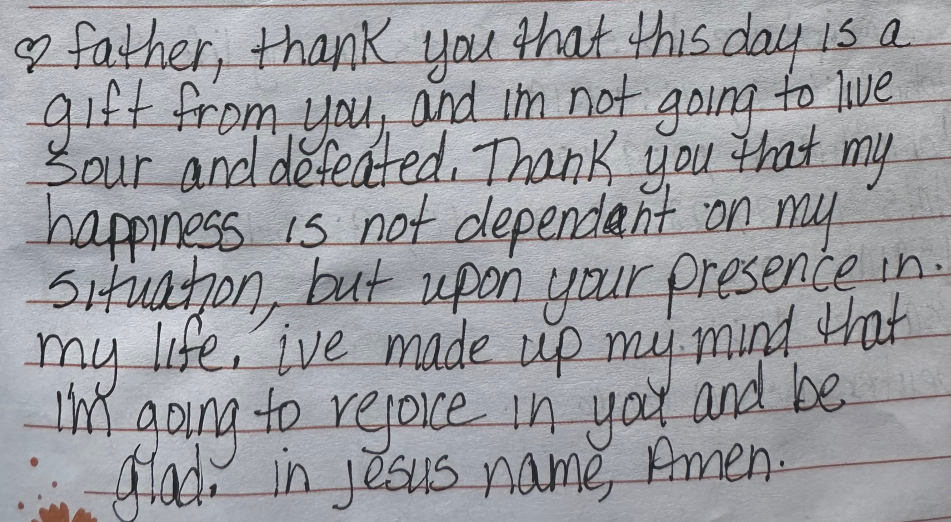 ♡ father, thank you that this day is a
gift from you, and im not going to live
sour and defeated. Thank you that my
happiness is not dependant on my
situation, but upon your presence in.
my life. ive made up my mind that
I'm going to rejoice in you and be
glad. in jesus name, Amen.